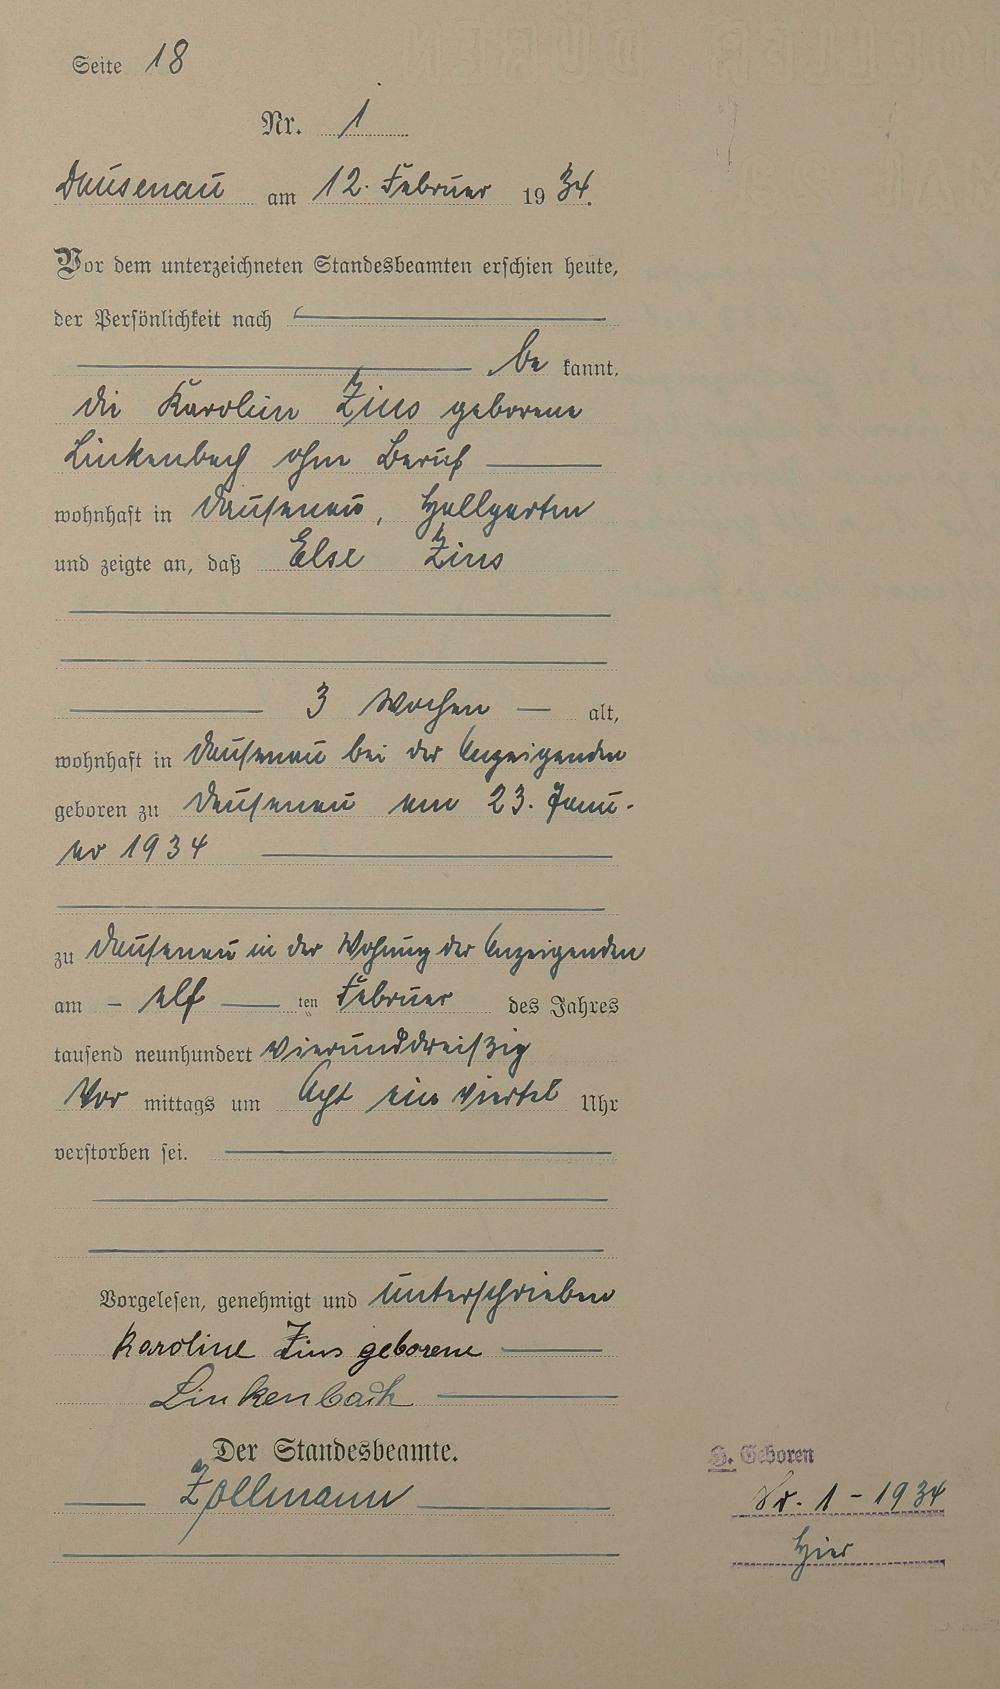 Seite 18
Nr. 1
Dausenau am 12. Februar 1934.
Vor dem unterzeichneten Standesbeamten erschien heute,
der Persönlichkeit nach
be kannt,
die Karolin Zins geborene
Linkenbach ohne Beruf
wohnhaft in Dausenau, Hallgarten
und zeigte an, daß Else Zins
3 Wochen alt,
wohnhaft in Dausenau bei der Anzeigenden
geboren zu Dausenau am 23. Janu-
ar 1934
zu Dausenau in der Wohnung der Anzeigenden
am elf ten Februar des Jahres
tausend neunhundert vierunddreißig
Vor mittags um Acht ein viertel Uhr
verstorben sei.
Vorgelesen, genehmigt und unterschrieben
Karoline Zins geborene
Linkenbach
Der Standesbeamte.
Zollmann
H. Geboren
Nr. 1 - 1934
hier